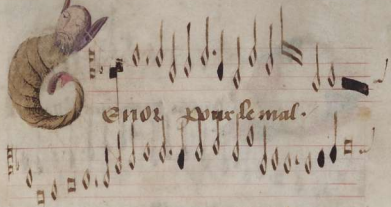 Tenor pour le mal.